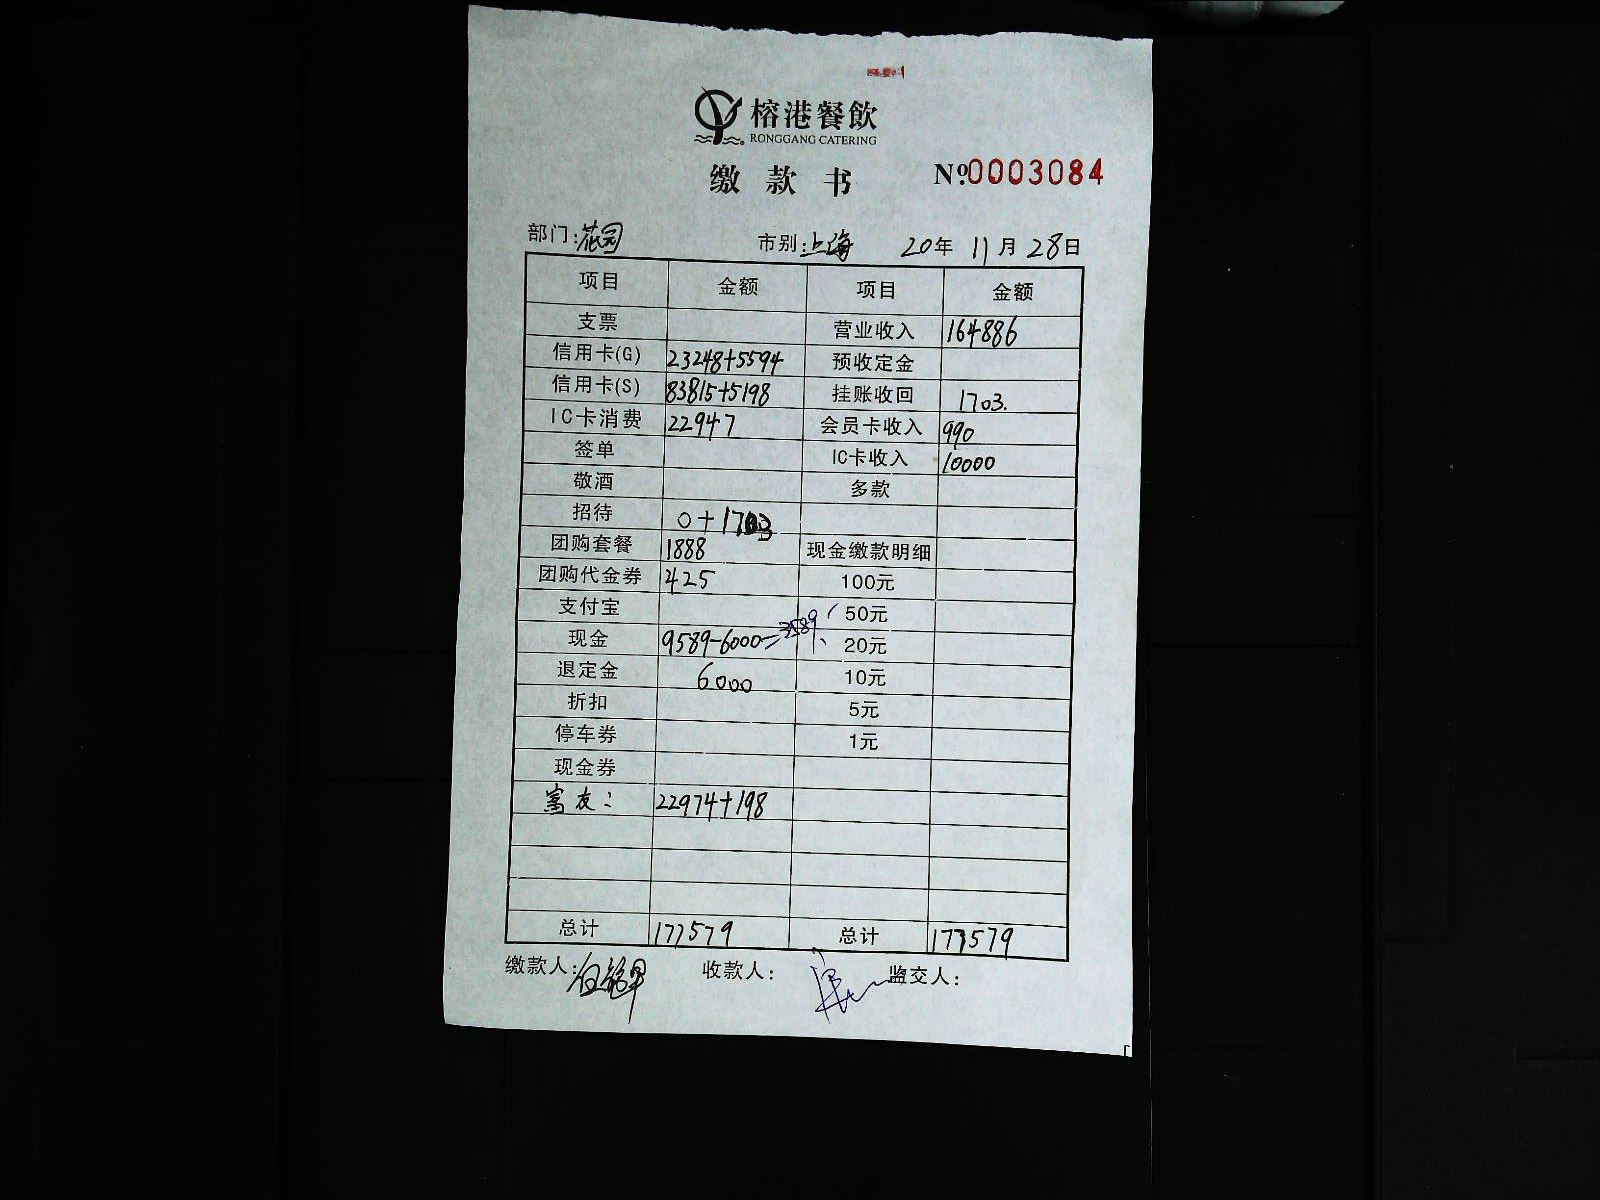 榕港餐飲
RONGGANG CATERING
缴款书 Nº0003084
部门:花园 市别:上海 20年 11月 28日
项目 金额 项目 金额
支票 营业收入 164886
信用卡(G) 23248+5594 预收定金
信用卡(S) 83815+5198 挂账收回 1703.
IC卡消费 22947 会员卡收入 990
签单 IC卡收入 10000
敬酒 多款
招待 0+1703
团购套餐 1888 现金缴款明细
团购代金券 425 100元
支付宝 50元
现金 9589-6000=3589 20元
退定金 6000 10元
折扣 5元
停车券 1元
现金券
富友: 22974+198
总计 177579 总计 177579
缴款人: 收款人: 监交人: